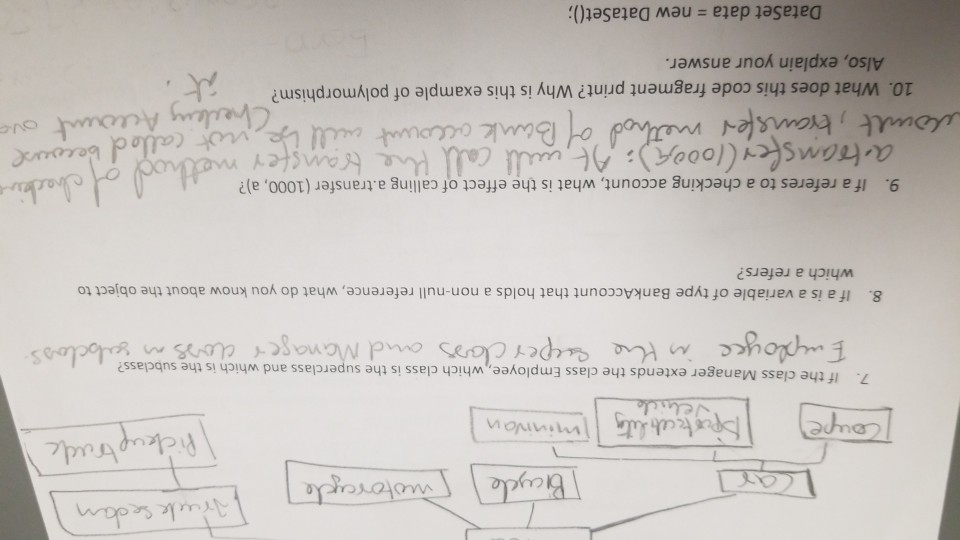 Car
Bicycle
motorcycle
Truck sedan
Coupe
Sportutility
Vehicle
minivan
Pickup truck
7. If the class Manager extends the class Employee, which class is the superclass and which is the subclass?
Employee is the super class and Manager class is subclass
8. If a is a variable of type BankAccount that holds a non-null reference, what do you know about the object to
which a refers?
9. If a referes to a checking account, what is the effect of calling a.transfer (1000, a)?
a.transfer(1000,a): It will call the transfer method of checkin
account, transfer method of Bank account will be not called because
Checking Account ove
it.
10. What does this code fragment print? Why is this example of polymorphism?
Also, explain your answer.
DataSet data = new DataSet();